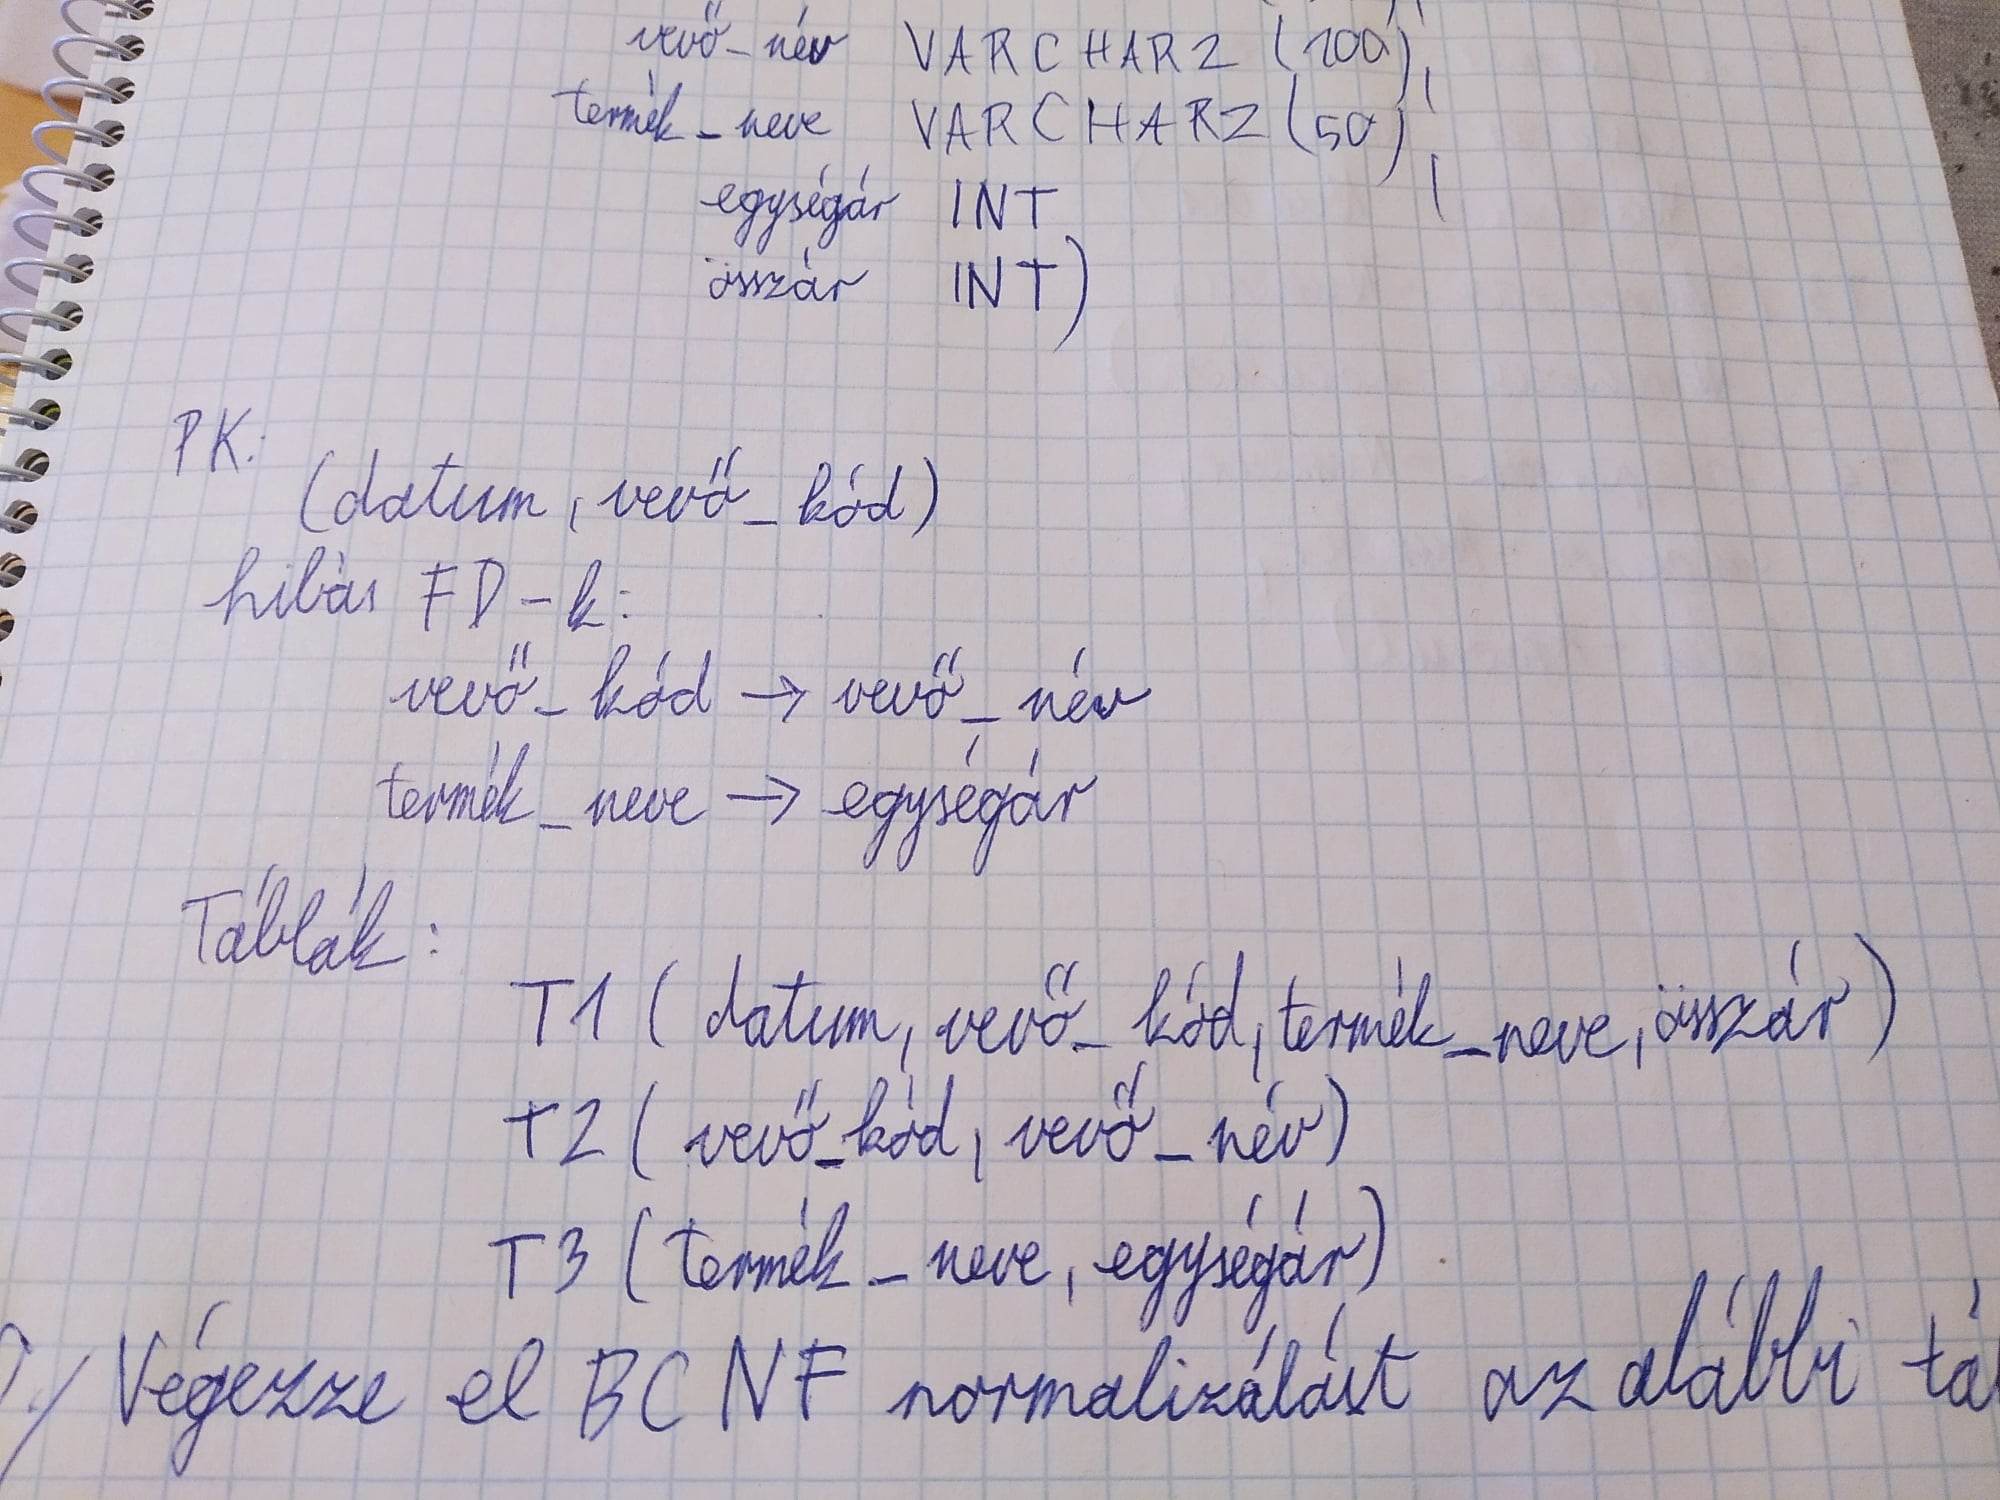 vevő_név VARCHAR2 (200),
termék_neve VARCHAR2 (50),
egységár INT
összár INT)
PK:
(datum, vevő_kód)
hibás FD-k:
vevő_kód → vevő_név
termék_neve → egységár
Táblák:
T1 (datum, vevő_kód, termék_neve, összár)
T2 (vevő_kód, vevő_név)
T3 (termék_neve, egységár)
Végezze el BCNF normalizálást az alábbi